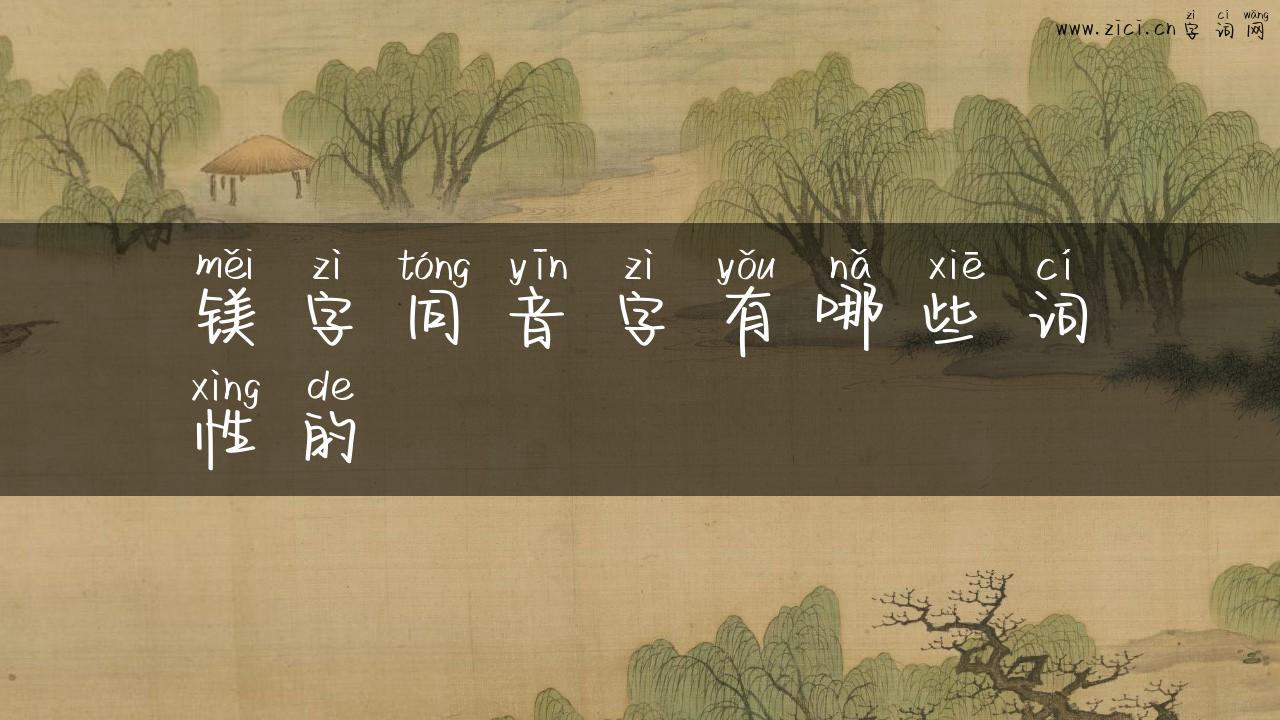 zì cí wǎng
www.zici.cn 字 词 网
měi zì tóng yīn zì yǒu nǎ xiē cí
镁 字 同 音 字 有 哪 些 词
xìng de
性 的